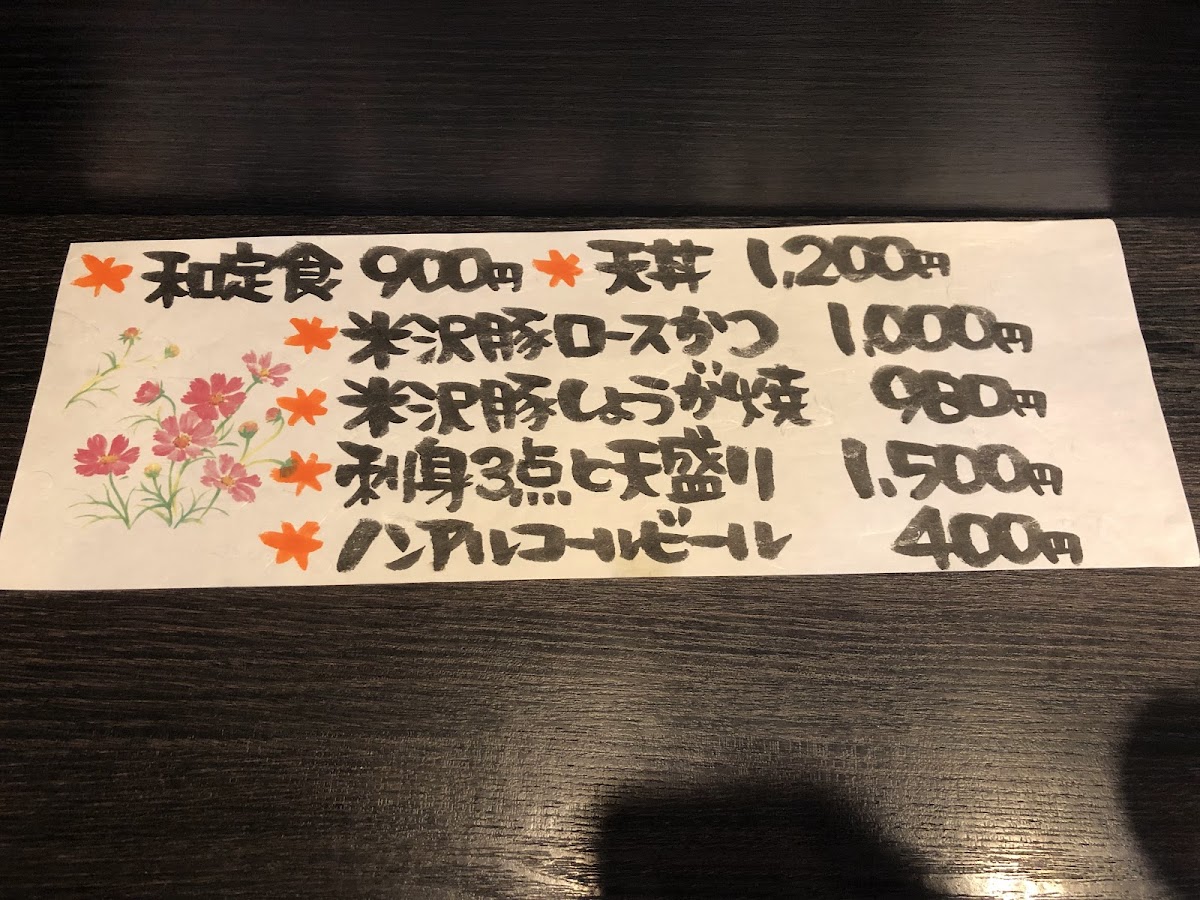 和定食 900円 天丼 1,200円
米沢豚ロースかつ 1,000円
米沢豚しょうが焼 980円
刺身3点と天盛り 1,500円
ノンアルコールビール 400円